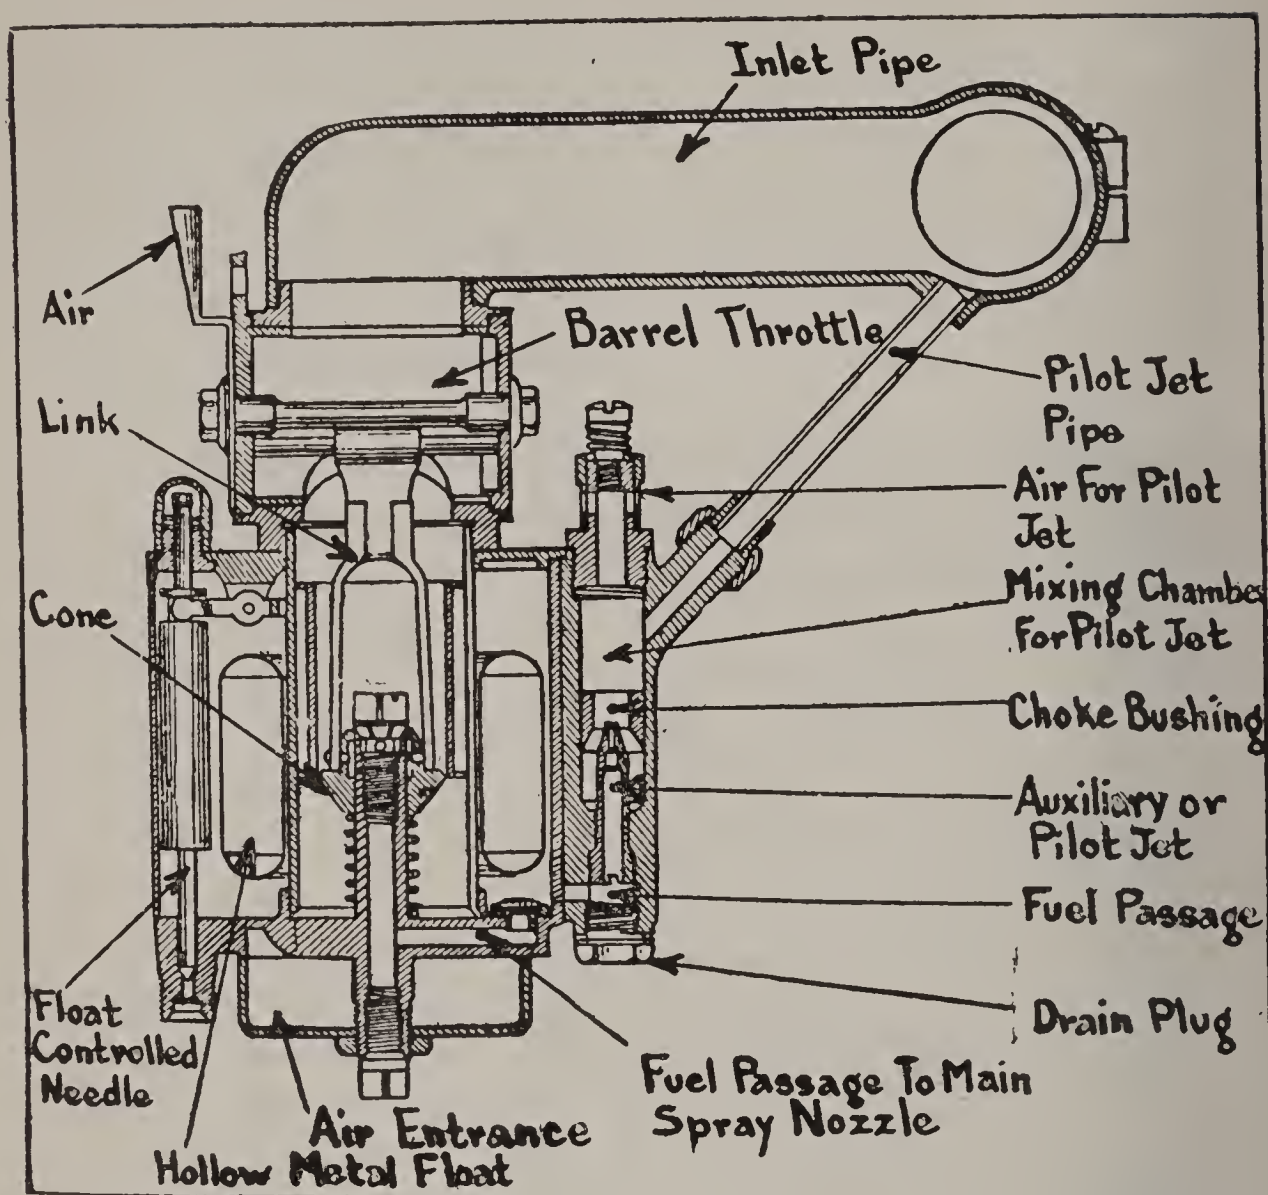 Inlet Pipe
Air
Barrel Throttle
Link
Pilot Jet
Pipe
Air For Pilot
Jet
Cone
Mixing Chambe
For Pilot Jet
Choke Bushing
Auxiliary or
Pilot Jet
Fuel Passage
Float
Controlled
Needle
Drain Plug
Fuel Passage To Main
Spray Nozzle
Air Entrance
Hollow Metal Float